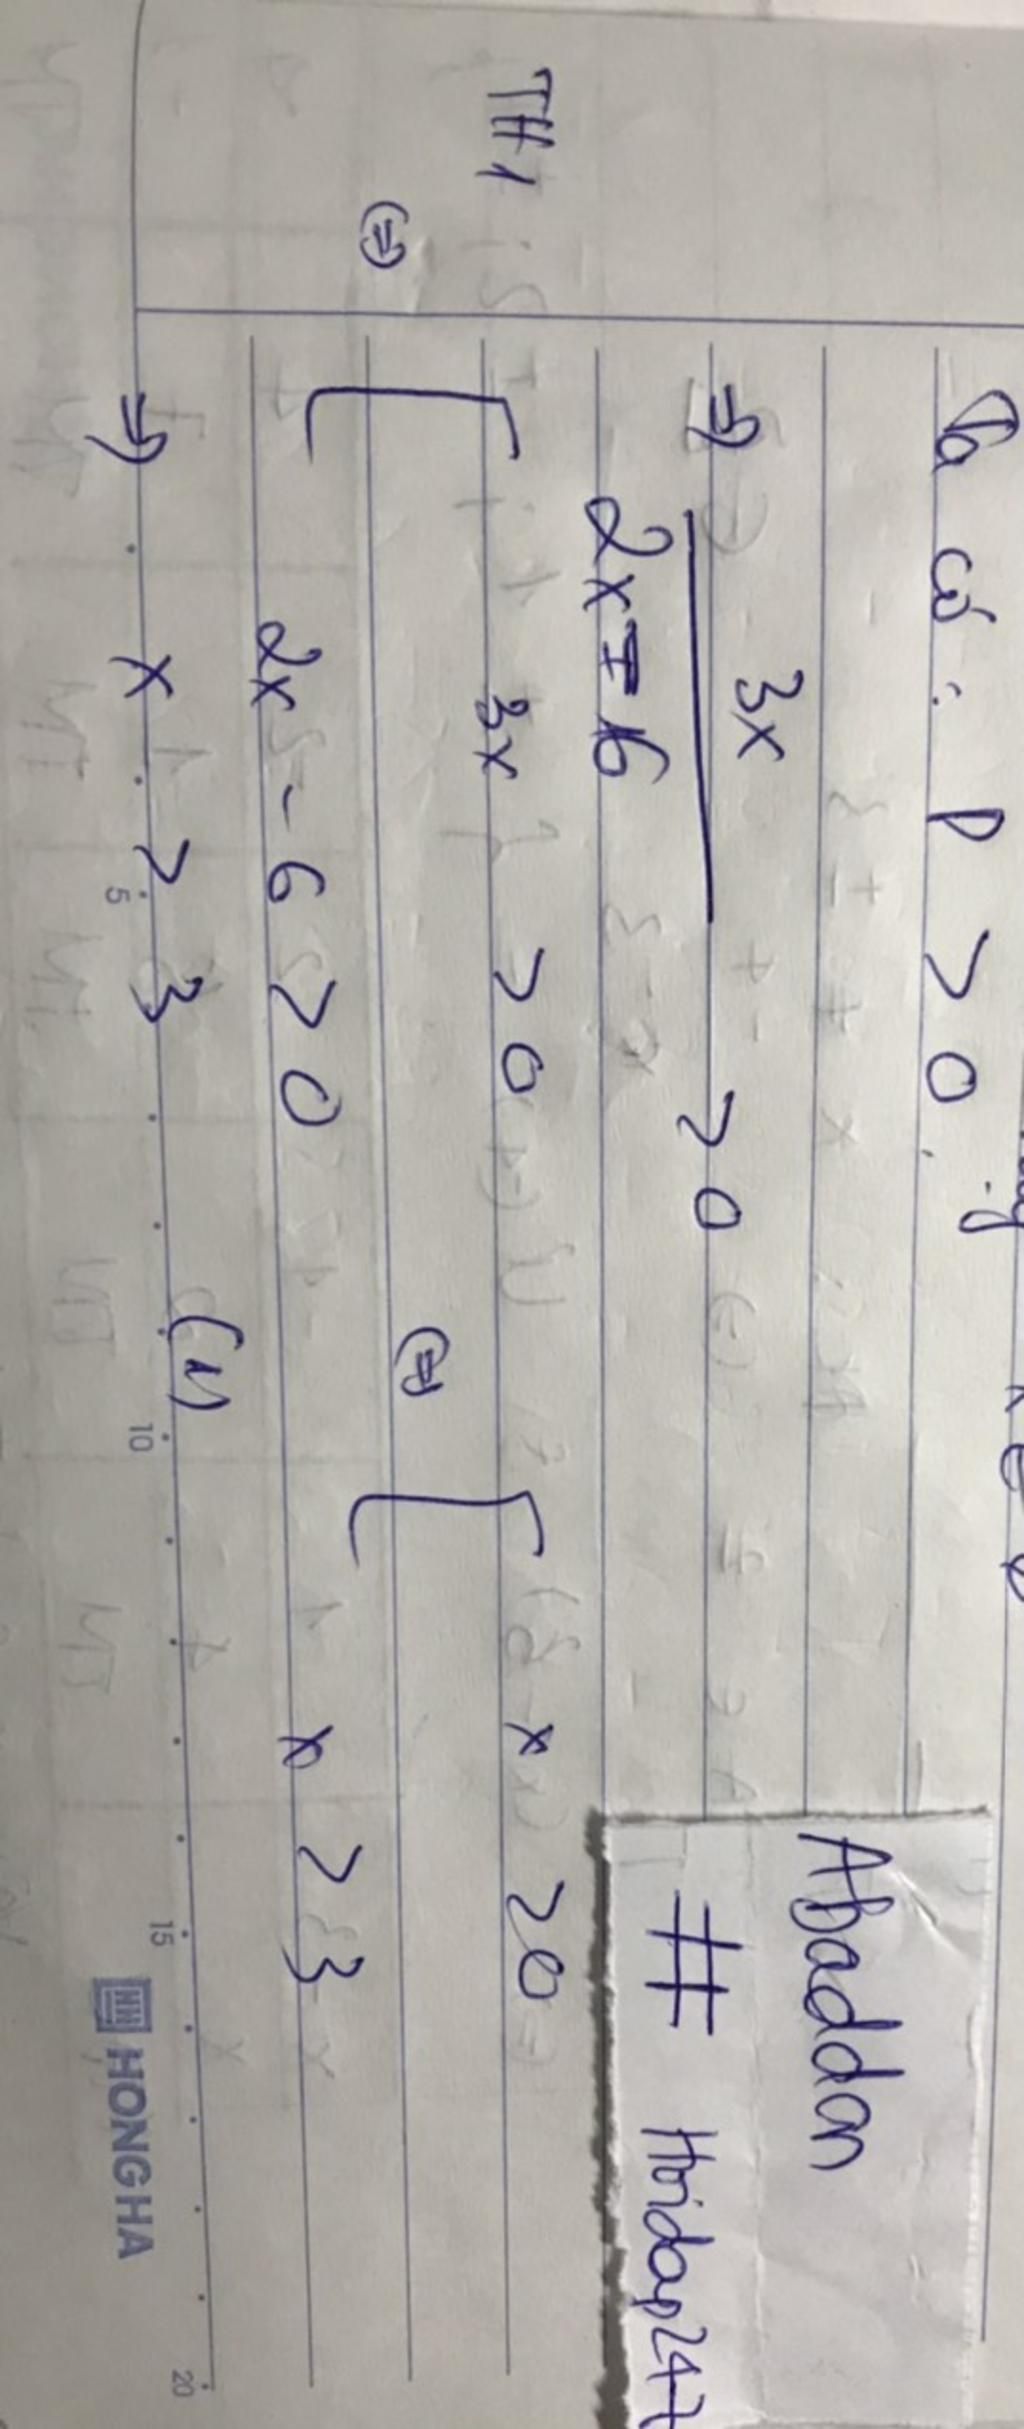 Ta có: P > 0.
=> 3x / 2x - 6 > 0
TH1
3x > 0
x > 0
(=>)
(=>)
2x - 6 > 0
x > 3
=> x > 3 (1)
Abaddon
# Hoidap247
5 10 15 20
HONGHA